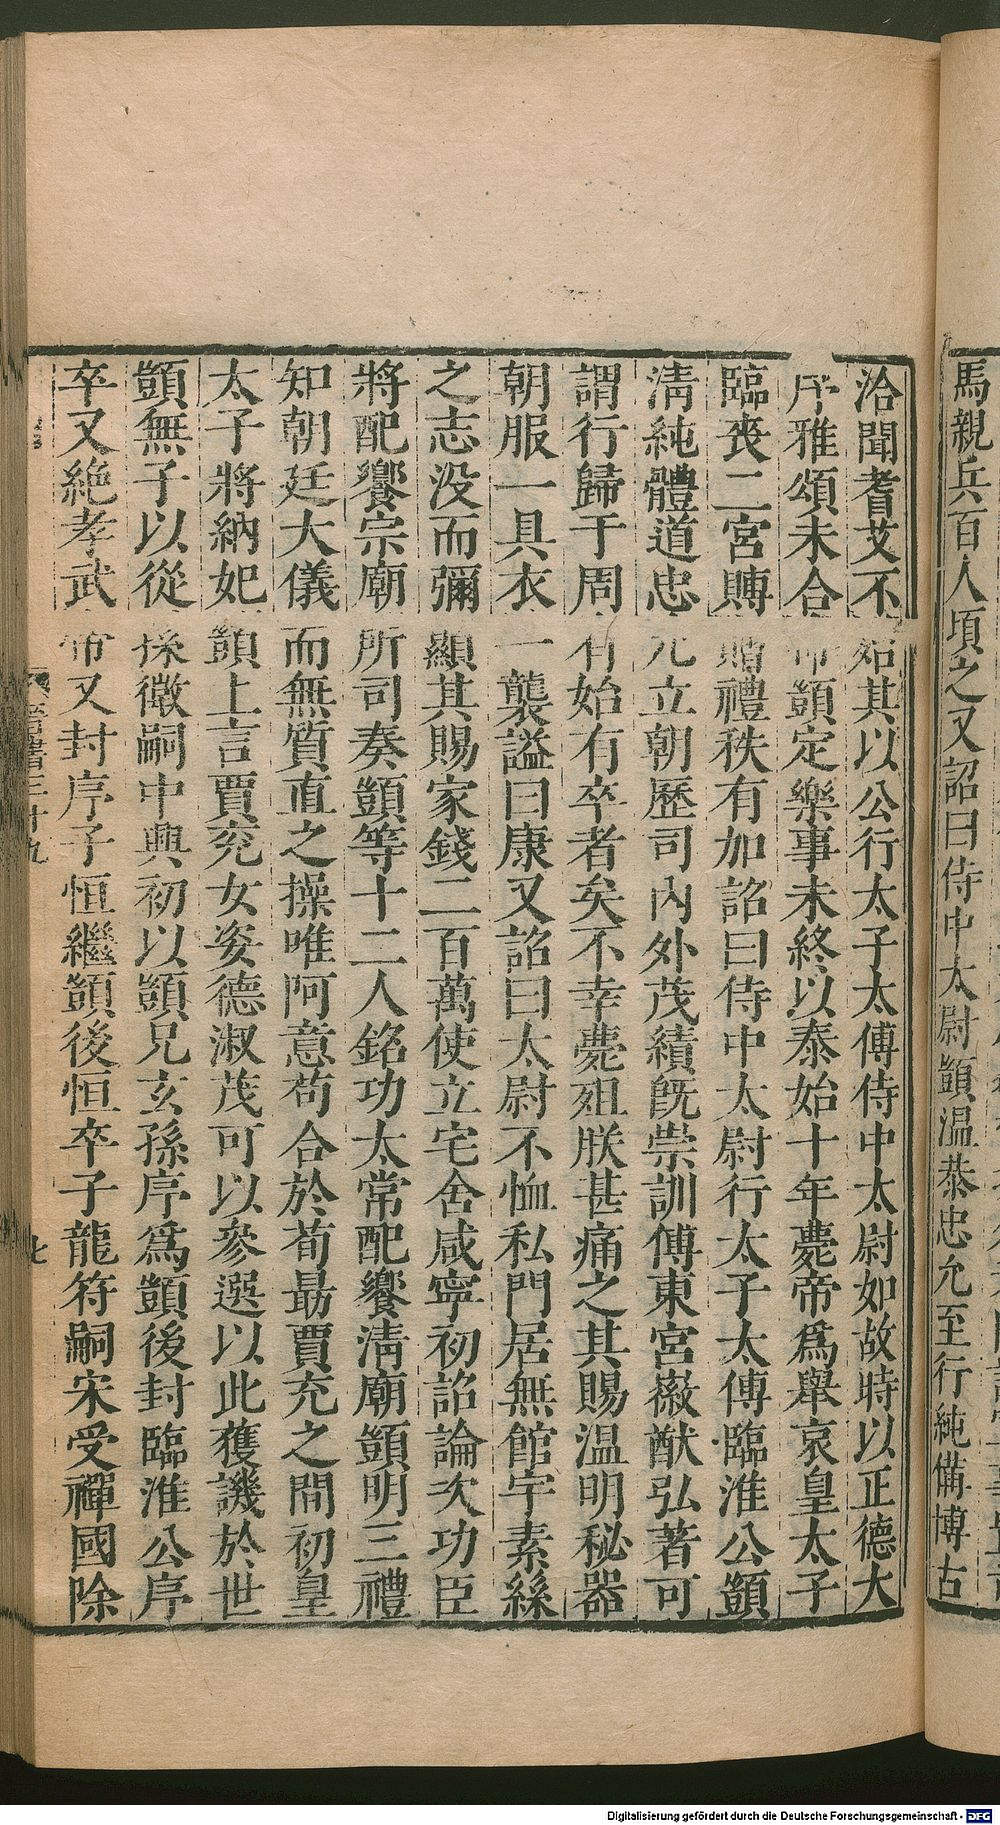 馬親兵百人頃之又詔曰侍中太尉顗温恭忠允至行純備博古
洽聞耆艾不殆其以公行太子太傅侍中太尉如故時以正德大
序雅頌未合命顗定樂事未終以泰始十年薨帝爲舉哀皇太子
臨喪二宮賻贈禮秩有加詔曰侍中太尉行太子太傅臨淮公顗
清純體道忠允立朝歷司內外茂績旣崇訓傅東宮徽猷弘著可
謂行歸于周有始有卒者矣不幸薨殂朕甚痛之其賜温明秘器
朝服一具衣一襲謚曰康又詔曰太尉不恤私門居無館宇素絲
之志没而彌顯其賜家錢二百萬使立宅舍咸寧初詔論次功臣
將配饗宗廟所司奏顗等十二人銘功太常配饗淸廟顗明三禮
知朝廷大儀而無質直之操唯阿意苟合於荀勗賈充之間初皇
太子將納妃顗上言賈充女姿德淑茂可以參選以此獲譏於世
顗無子以從孫徽嗣中興初以顗兄玄孫序爲顗後封臨淮公序
卒又絶孝武帝又封序子恒繼顗後恒卒子龍符嗣宋受禪國除
晉書三十九
七
Digitalisierung gefördert durch die Deutsche Forschungsgemeinschaft - DFG